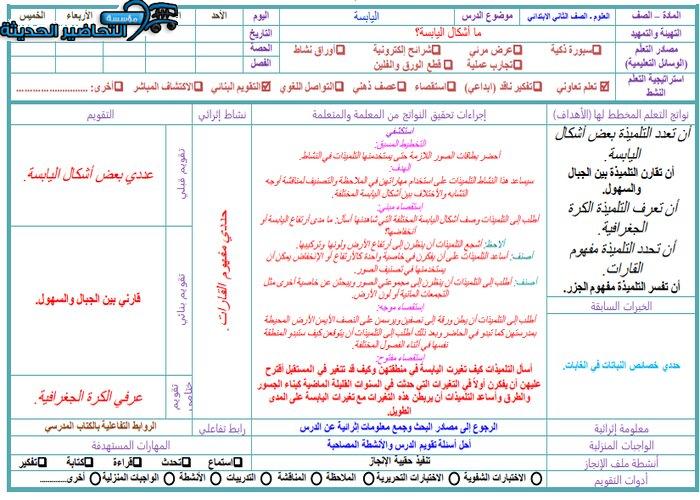 مؤسسة التحاضير الحديثة
المادة – الصف
العلوم - الصف الثاني الابتدائي
موضوع الدرس
اليابسة
اليوم
الأحد
الأربعاء
الخميس
التهيئة والتمهيد
ما أشكال اليابسة؟
التاريخ
مصادر التعلم
(الوسائل التعليمية)
سبورة ذكية
عرض مرئي
شرائح إلكترونية
أوراق نشاط
تجارب عملية
قطع الورق والفلين
الحصة
الفصل
استراتيجية التعلم
النشط
تعلم تعاوني
تفكير ناقد (ابداعي)
استقصاء
عصف ذهني
التواصل اللغوي
التقويم البنائي
الاكتشاف المباشر
أخرى: ..............
نواتج التعلم المخطط لها (الأهداف)
إجراءات تحقيق النواتج من المعلمة والمتعلمة
نشاط إثرائي
التقويم
أن تعدد التلميذة بعض أشكال
اليابسة.
أن تقارن التلميذة بين الجبال
والسهول.
أن تعرف التلميذة الكرة
الجغرافية.
أن تحدد التلميذة مفهوم
القارات.
أن تفسر التلميذة مفهوم الجزر.
الخبرات السابقة
حددي خصائص النباتات في الغابات.
استكشفي
التخطيط المسبق:
أحضر بطاقات الصور اللازمة حتى يستخدمنها التلميذات في النشاط.
الهدف:
سيساعد هذا النشاط التلميذات على استخدام مهاراتهن في الملاحظة والتصنيف لمناقشة أوجه
التشابه والأختلاف بين أشكال اليابسة المختلفة.
إستقصاء مبني:
أطلب إلى التلميذات وصف أشكال اليابسة المختلفة التي شاهدنها أسأل: ما مدى أرتفاع اليابسة أو
أنخفاضها؟
ألاحظ: أشجع التلميذات أن ينظرن إلى أرتفاع الأرض ولونها وتركيبها.
أصنف: أساعد التلميذات على أن يفكرن في خاصية واحدة كالأرتفاع أو الإنخفاض يمكن أن
يستخدمنها في تصنيف الصور.
أصنف: أطلب إلى التلميذات أن ينظرن إلى مجموعتي الصور ويبحثن عن خاصية أخرى مثل
التجمعات المائية أو لون الأرض.
إستقصاء موجه:
أطلب إلى التلميذات أن يطن ورقة إلى نصفين ويرسمن على النصف الأيمن الأرض المحيطة
بمدرستهن كما تبدو في الحاضر وبعد ذلك أطلب إلى التلميذات أن يتوقعن كيف ستبدو المنطقة
نفسها في أثناء الفصول المختلفة.
إستقصاء مفتوح:
أسأل التلميذات كيف تغيرت اليابسة في منطقتهن وكيف قد تتغير في المستقبل أقترح
عليهن أن يفكرن أولاً في التغيرات التي حدثت في السنوات القليلة الماضية كبناء الجسور
والطرق وأساعد التلميذات أن يربطن هذه التغيرات مع تغيرات اليابسة على المدى
الطويل.
حددي مفهوم القارات.
تقويم قبلي
عددي بعض أشكال اليابسة.
تقويم بنائي
قارني بين الجبال والسهول.
تقويم ختامي
عرفي الكرة الجغرافية.
معلومة إثرائية
الرجوع إلى مصادر البحث وجمع معلومات إثرائية عن الدرس
رابط تفاعلي
الروابط التفاعلية بالكتاب المدرسي
الواجبات المنزلية
أحل أسئلة تقويم الدرس والأنشطة المصاحبة
المهارات المستهدفة
أنشطة ملف الإنجاز
تنفيذ حقيبة الإنجاز
استماع
تحدث
قراءة
كتابة
تفكير
أدوات التقويم
الاختبارات الشفوية
الاختبارات التحريرية
الملاحظة
المناقشة
التدريبات
الأنشطة
الواجبات المنزلية
أخرى..............